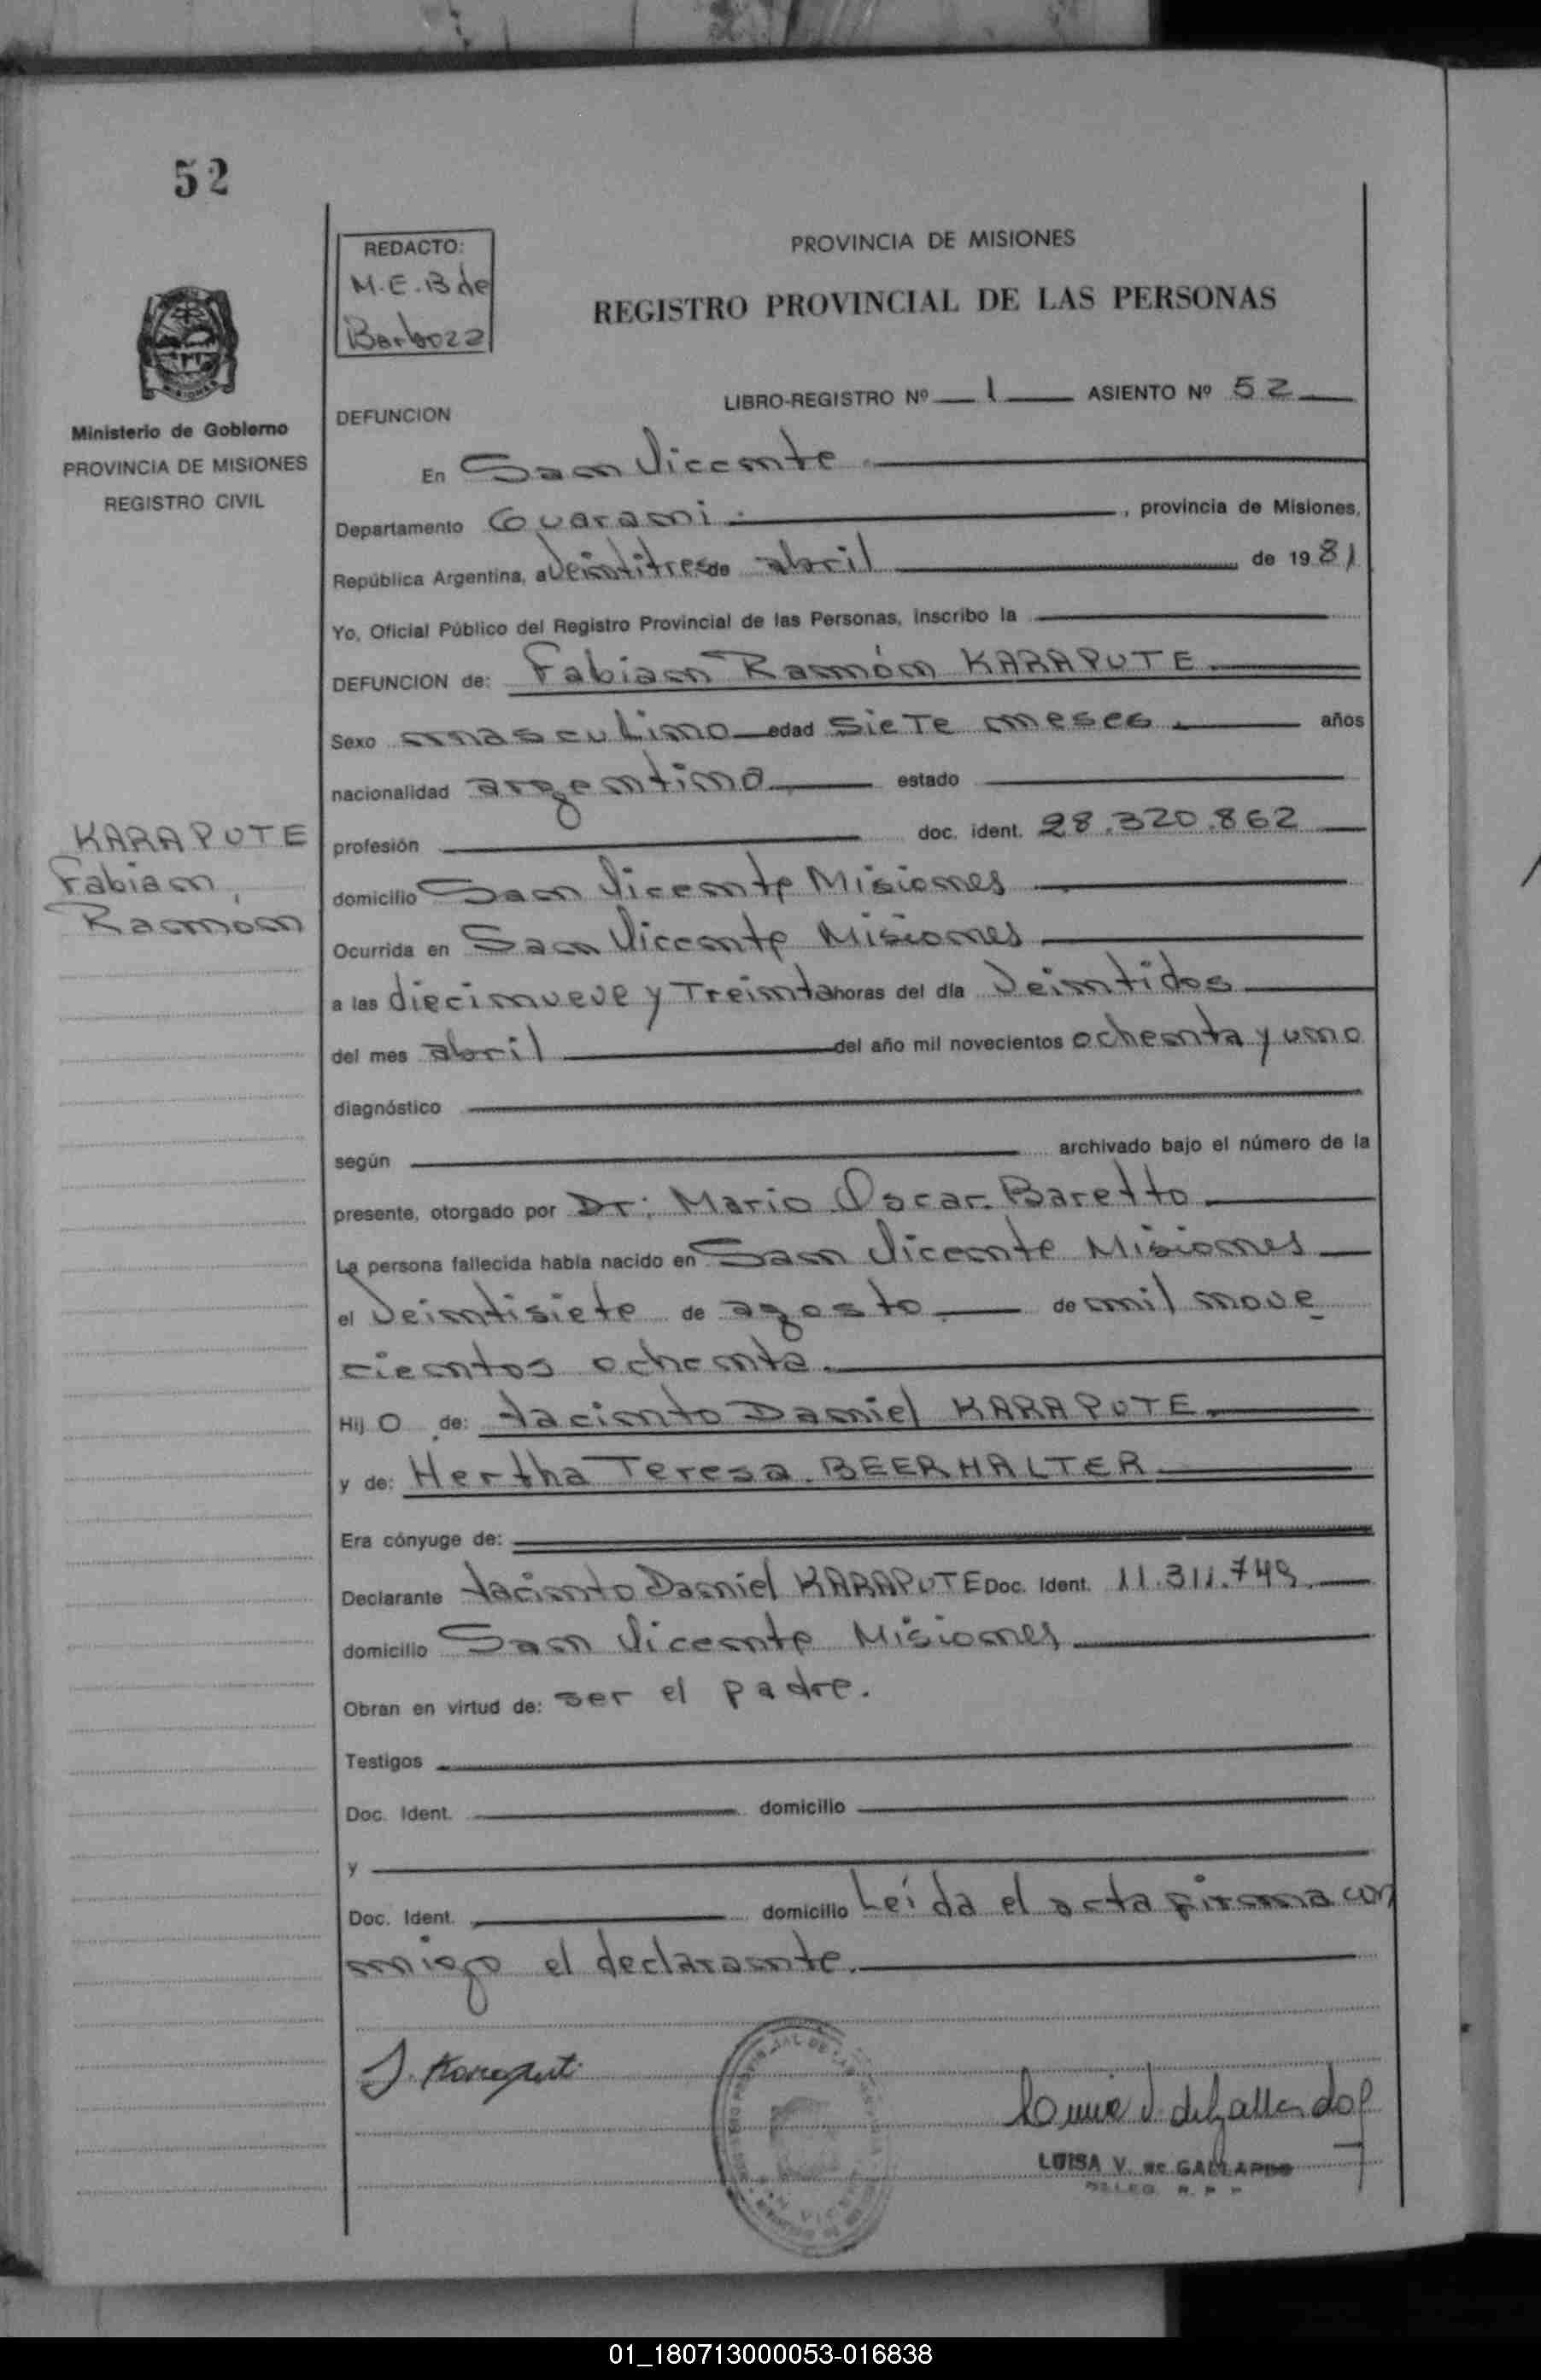 52
REDACTO:
M.E.B de
Barboza
PROVINCIA DE MISIONES
REGISTRO PROVINCIAL DE LAS PERSONAS
Ministerio de Gobierno
PROVINCIA DE MISIONES
REGISTRO CIVIL
DEFUNCION LIBRO-REGISTRO Nº 1 ASIENTO Nº 52
En San Vicente
Departamento Guarani, provincia de Misiones,
República Argentina, a Veintitres de abril de 1981
Yo, Oficial Público del Registro Provincial de las Personas, inscribo la
DEFUNCION de: Fabian Ramón KARAPUTE.
Sexo masculino edad siete meses. años
nacionalidad argentina estado
KARAPUTE
Fabian
Ramón
profesión doc. ident. 28.320.862
domicilio San Vicente Misiones
Ocurrida en San Vicente Misiones
a las diecinueve y Treinta horas del día Veintidos
del mes abril del año mil novecientos ochenta y uno
diagnóstico
según archivado bajo el número de la
presente, otorgado por Dr: Mario Oscar Baretto
La persona fallecida había nacido en San Vicente Misiones
el Veintisiete de agosto de mil nove
cientos ochenta.
Hijo de: Jacinto Daniel KARAPUTE.
y de: Hertha Teresa BEERHALTER
Era cónyuge de:
Declarante Jacinto Daniel KARAPUTE Doc. Ident. 11.311.749.
domicilio San Vicente Misiones
Obran en virtud de: ser el padre.
Testigos
Doc. Ident. domicilio
y
Doc. Ident. domicilio Leída el acta firma con
migo el declarante.
LUISA V. de GALLARDO
01_180713000053-016838